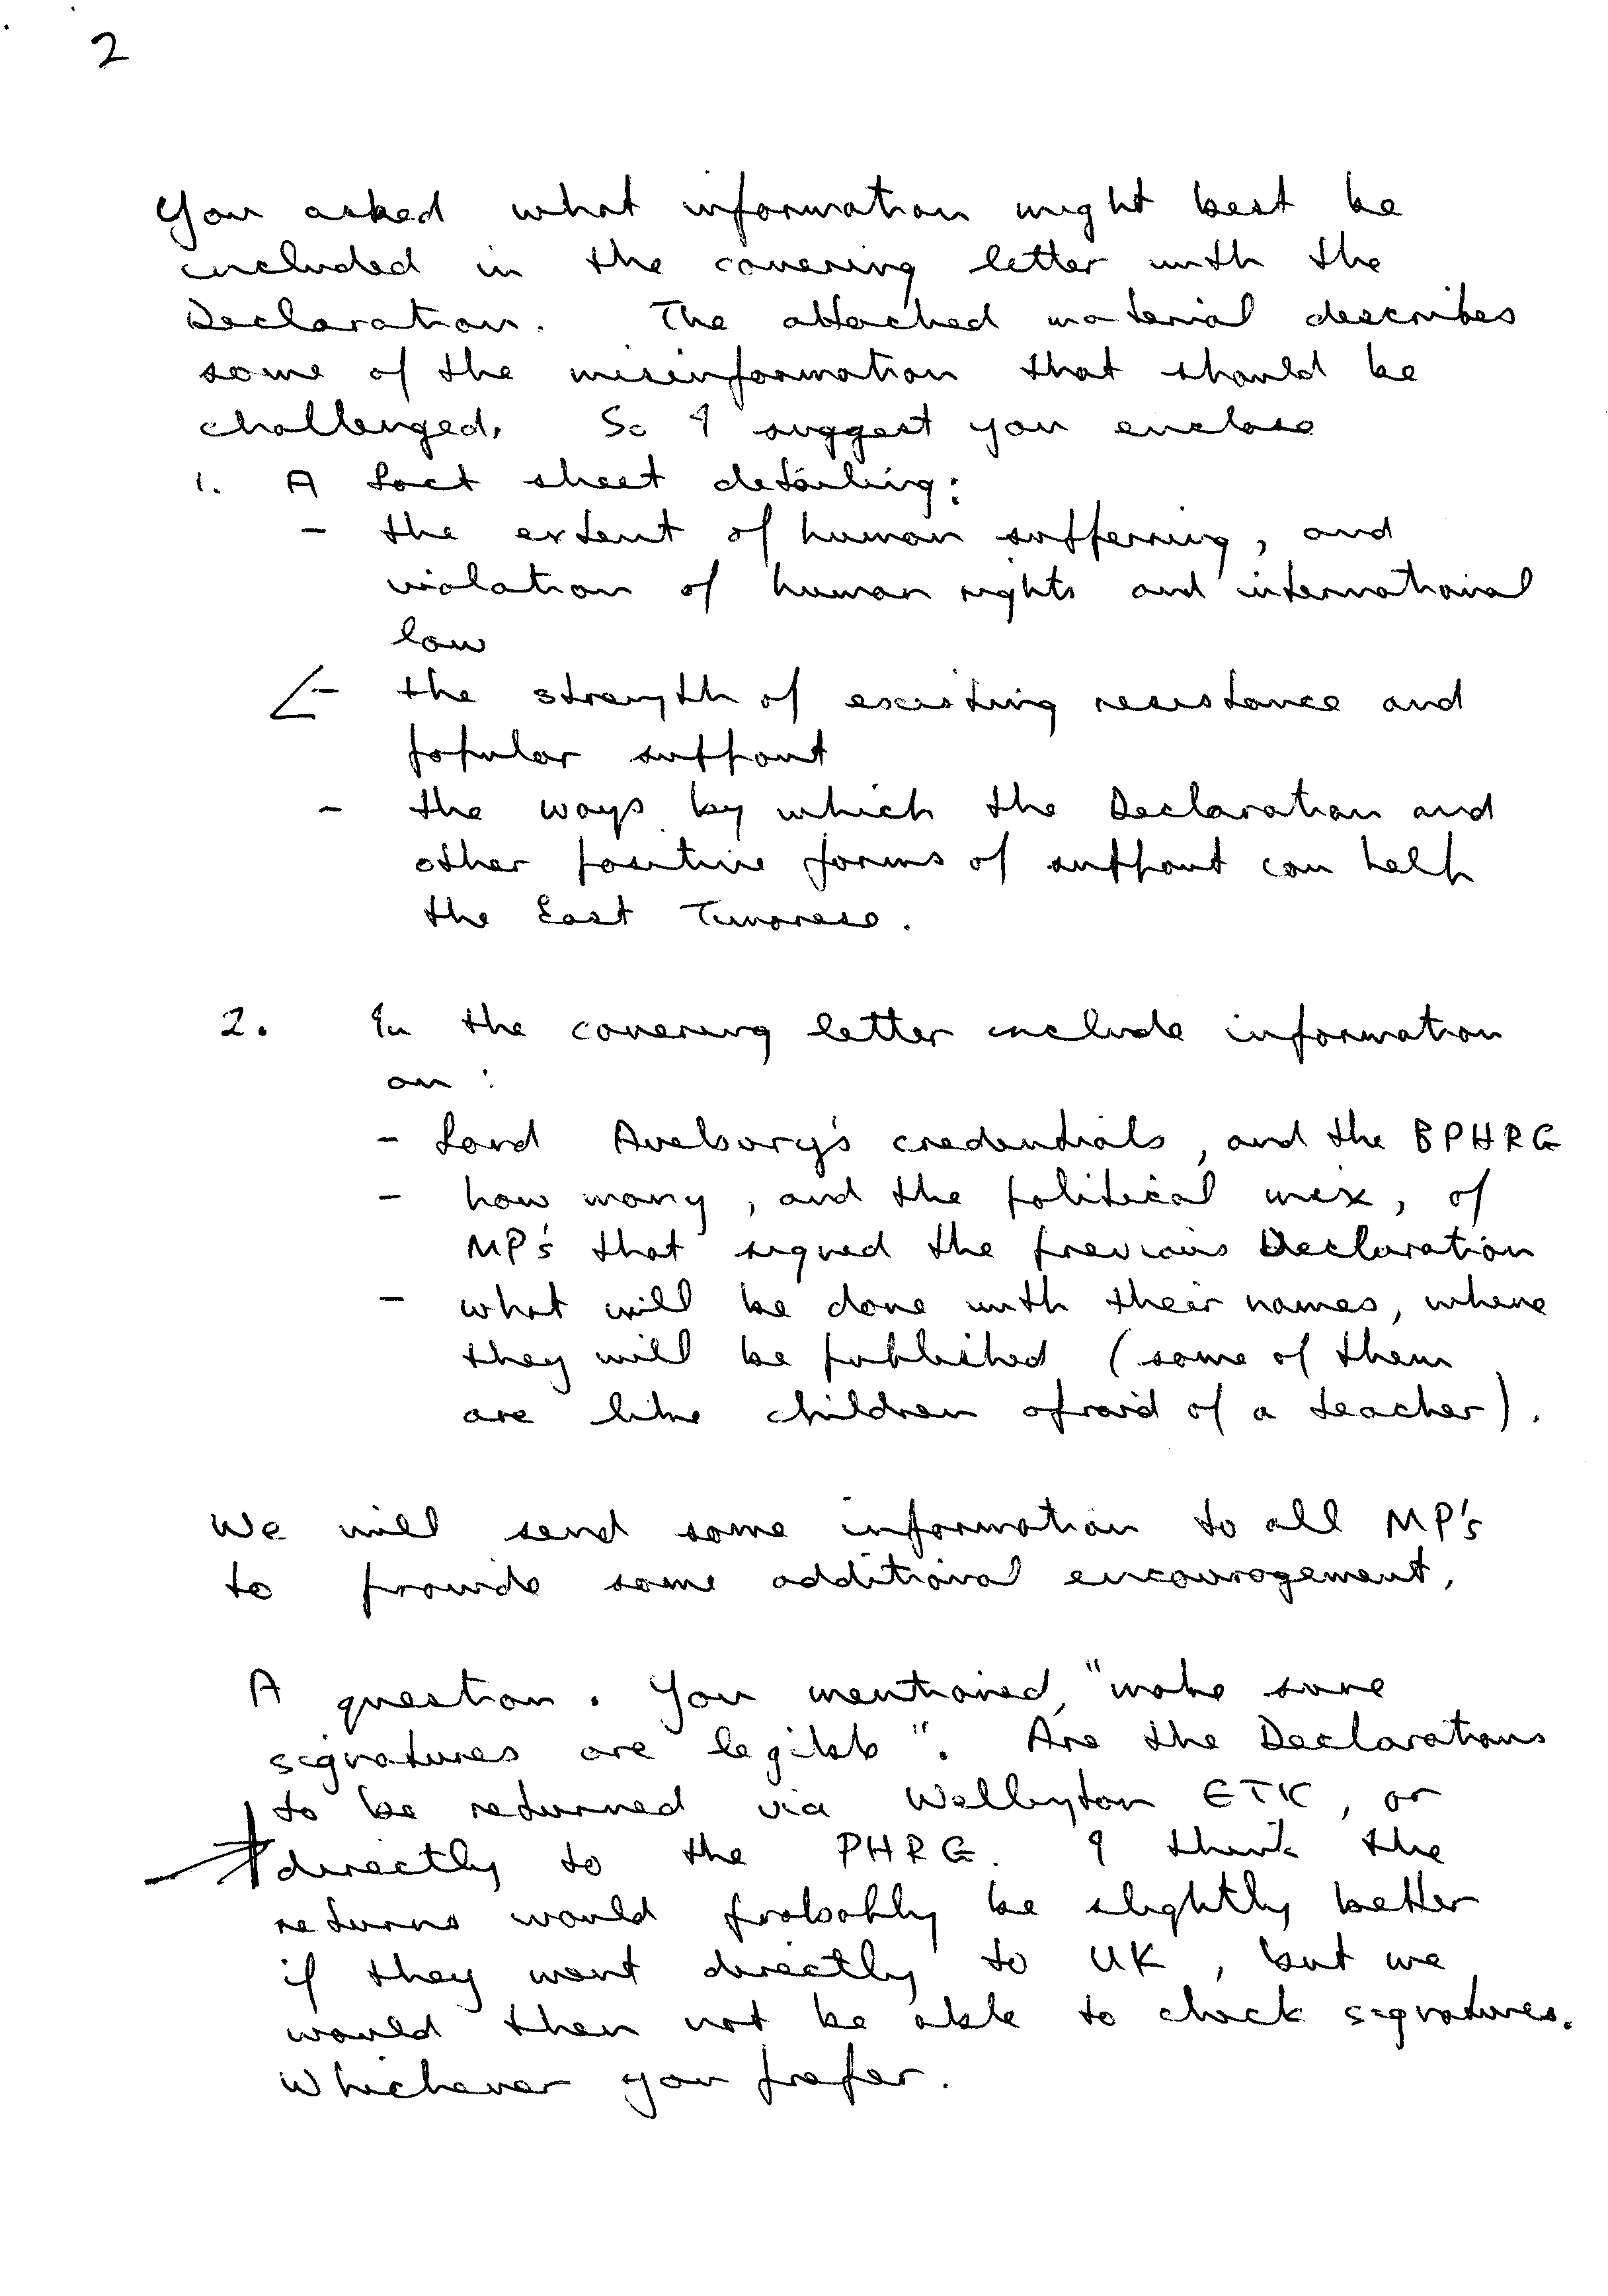 2
You asked what information might best be
included in the covering letter with the
Declaration. The attached material describes
some of the misinformation that should be
challenged. So I suggest you enclose
1. A fact sheet detailing:
- the extent of human suffering, and
violation of human rights and international
law
- the strength of existing resistance and
popular support
- the ways by which the Declaration and
other positive forms of support can help
the East Timorese.
2. In the covering letter include information
on:
- Lord Avebury's credentials, and the BPHRG
- how many, and the political mix, of
MP's that signed the previous Declaration
- what will be done with their names, where
they will be published (some of them
are like children afraid of a teacher).
We will send some information to all MP's
to provide some additional encouragement.
A question. You mentioned, "make sure
signatures are legible". Are the Declarations
to be returned via Wellington ETIC, or
directly to the PHRG. I think the
returns would probably be slightly better
if they went directly to UK, but we
would then not be able to check signatures.
Whichever you prefer.